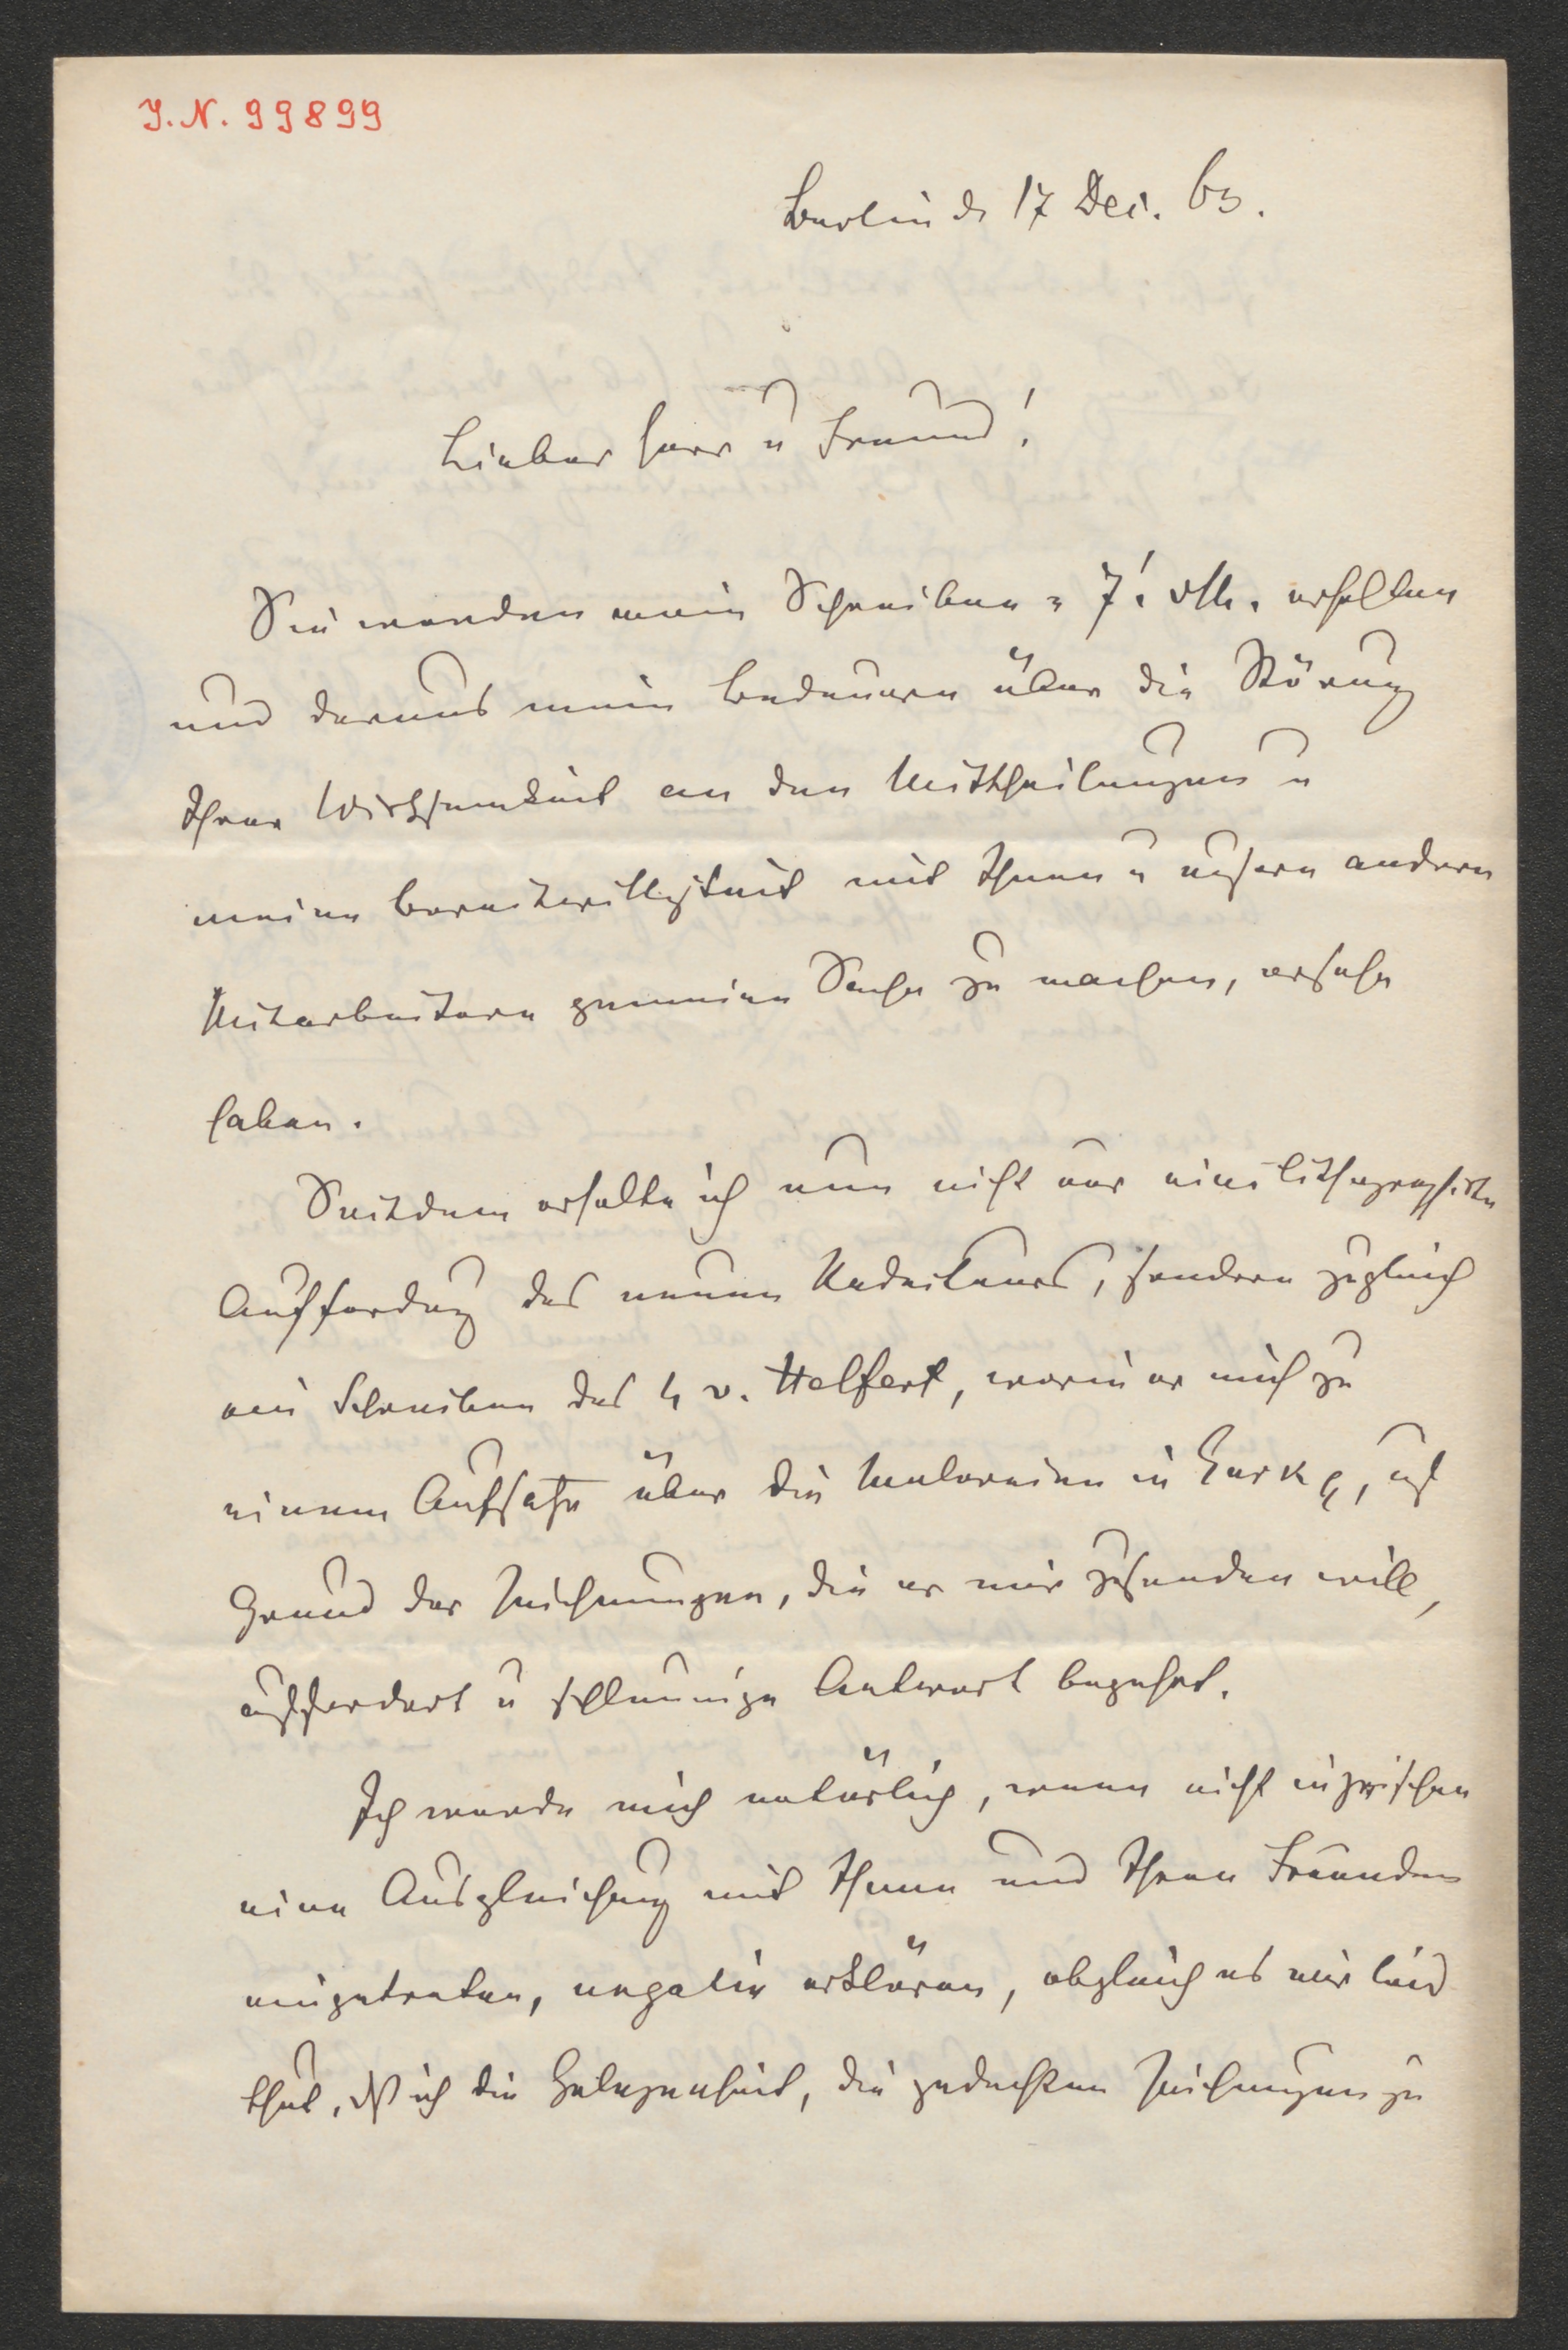 I.N. 99899
Berlin d 17 Dec. 63.
Lieber Herr u Freund!
Sie werden mein Schreiben v 7 d M. erhalten
und daraus mein Bedauern über die Störung
Ihrer Wirksamkeit an den Mittheilungen u
meine Bereitwilligkeit mit Ihnen u unsern andern
Mitarbeitern gemeine Sache zu machen, ersehen
haben.
Seitdem erhalte ich nun nicht nur eine lithographirte
Aufforderung des neuen Redacteurs, sondern zugleich
ein Schreiben des H v. Helfert, worin er mich zu
einem Aufsatze über die Malereien in Gurk, auf
Grund der Zeichnungen, die er mir zusenden will,
auffordert u schleunige Antwort begehrt.
Ich werde mich natürlich, wenn nicht inzwischen
eine Ausgleichung mit Ihnen und Ihren Freunden
eingetreten, negativ erklären, obgleich es mir leid
thut, dß ich die Gelegenheit, die gedachten Zeichnungen zu